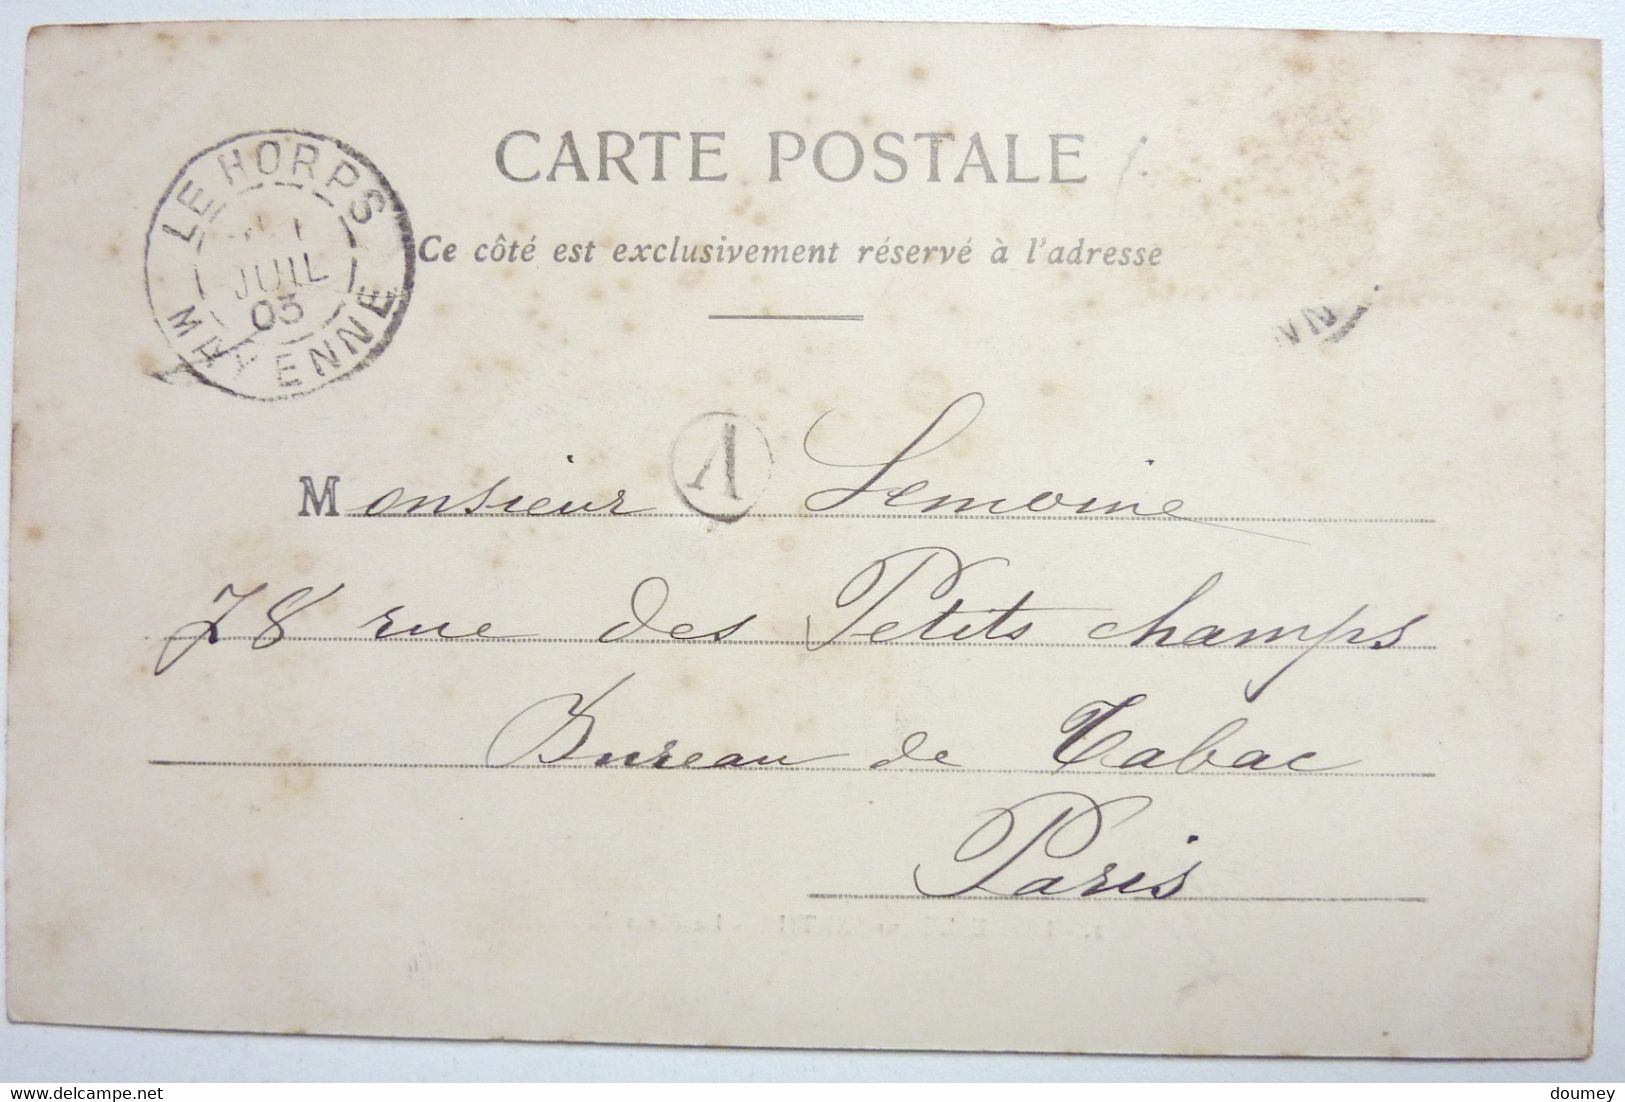 CARTE POSTALE
Ce côté est exclusivement réservé à l'adresse
LE HORPS
JUIL
03
MAYENNE
Monsieur Lemoine
78 rue des Petits champs
Bureau de Tabac
Paris
delcampe.net
doumey